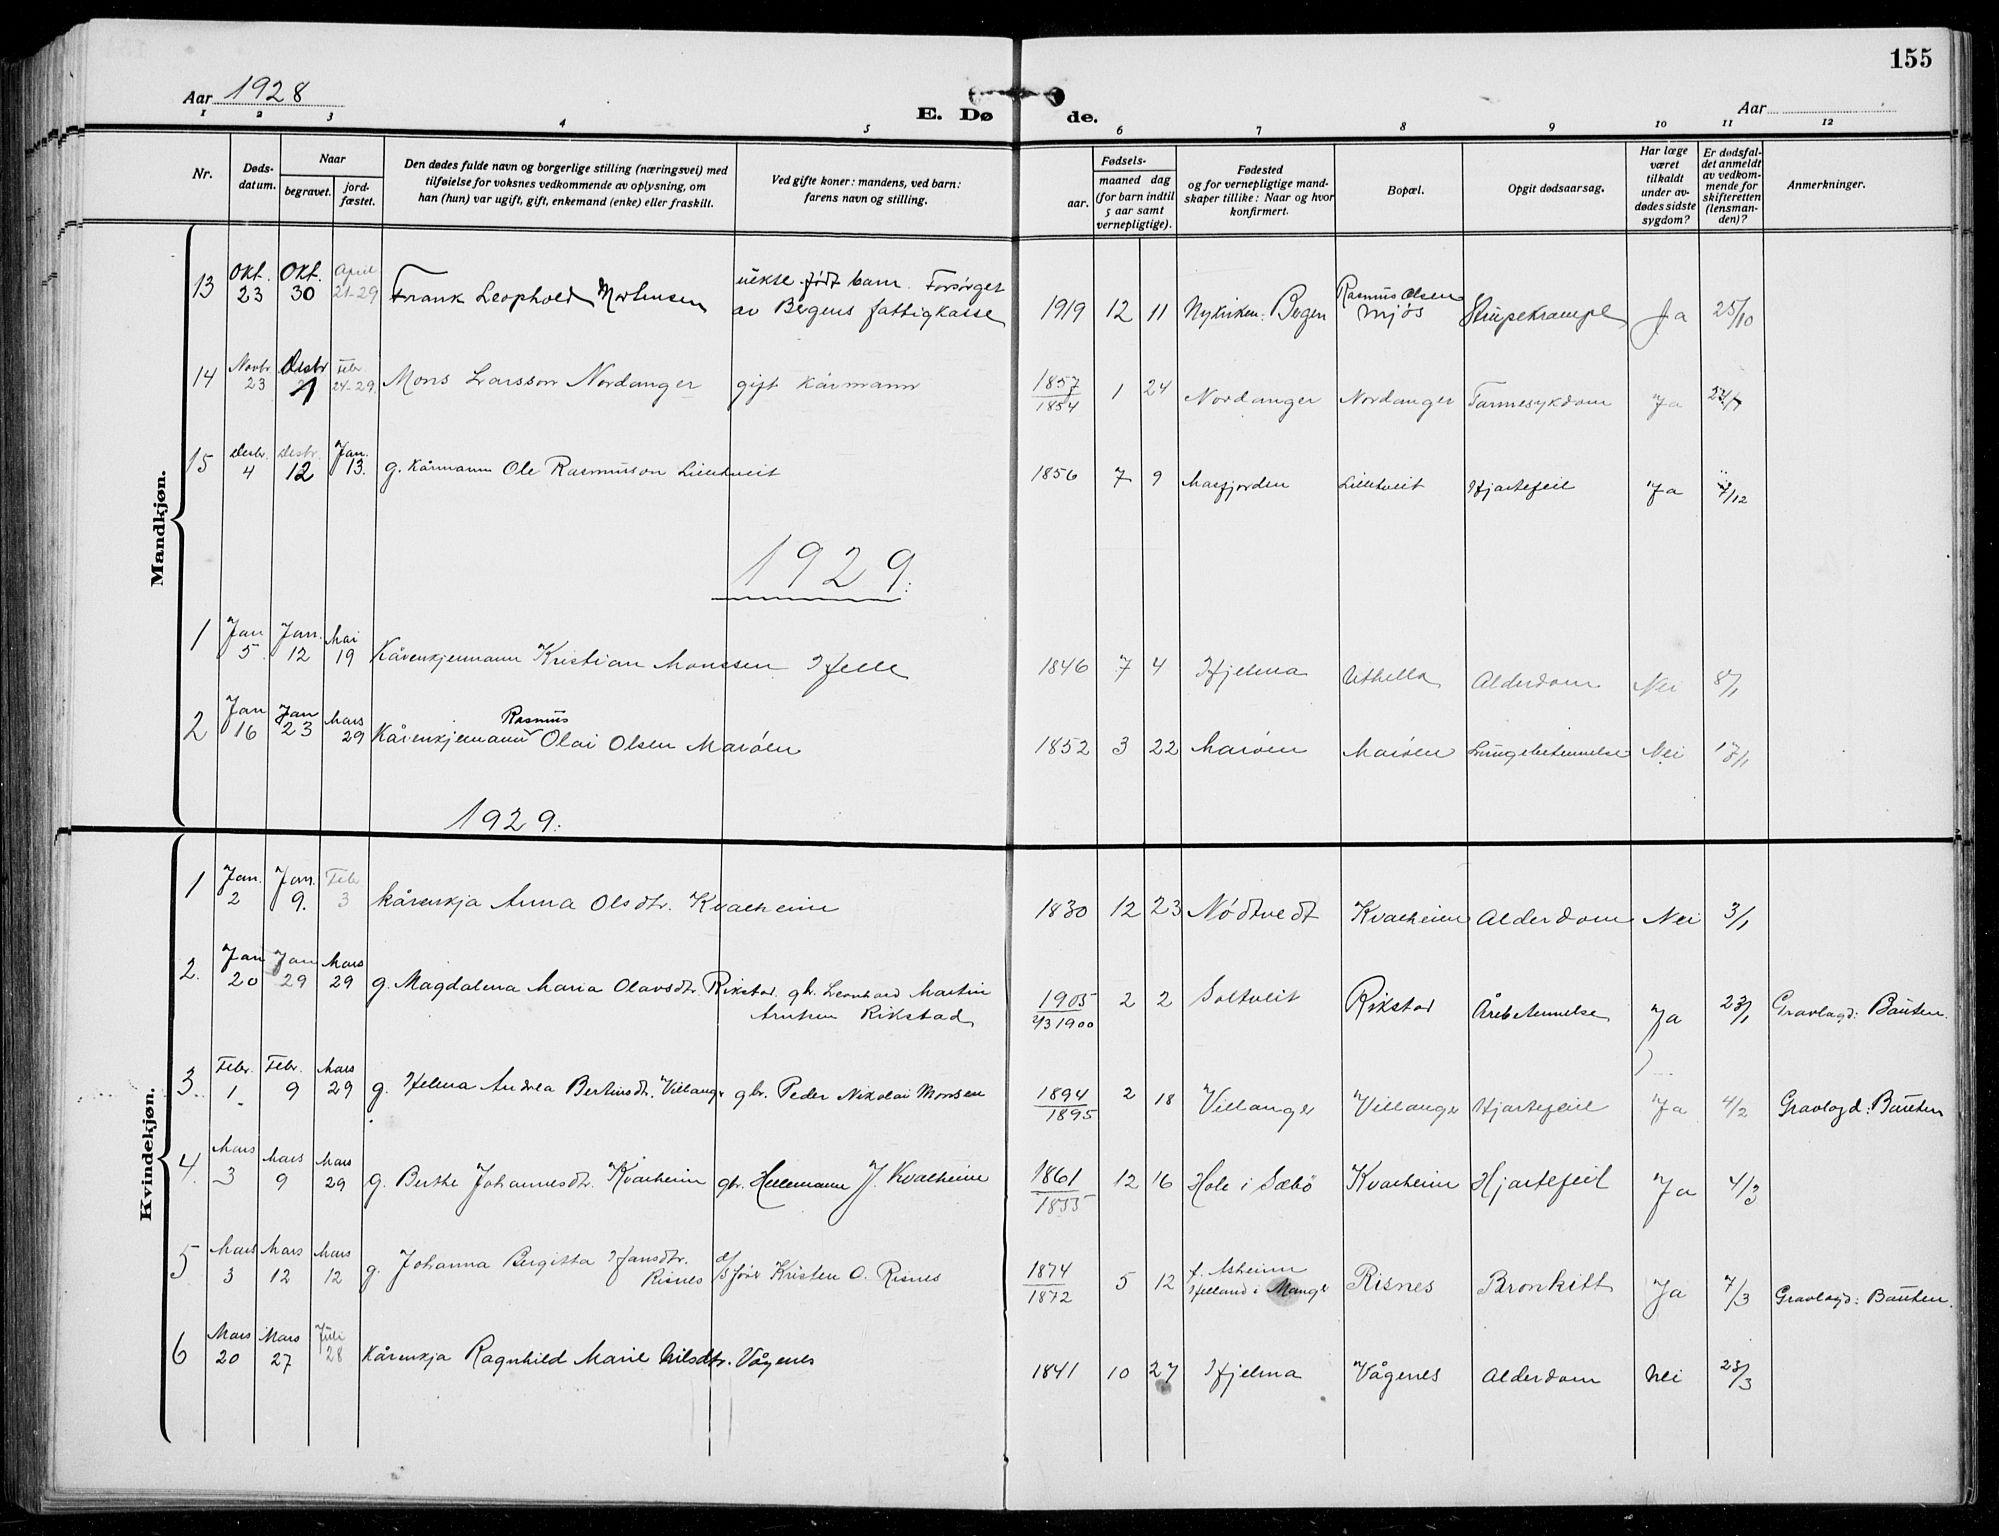 155
Aar 1928
E. Dø de.
Aar
1 2 3 4 5 6 7 8 9 10 11 12
Nr.
Døds-
datum.
Naar
begravet.
jord-
fæstet.
Den dødes fulde navn og borgerlige stilling (næringsvei) med
tilføielse for voksnes vedkommende av oplysning, om
han (hun) var ugift, gift, enkemand (enke) eller fraskilt.
Ved gifte koner: mandens, ved barn:
farens navn og stilling.
Fødsels-
aar.
maaned dag
(for barn indtil
5 aar samt
vernepligtige).
Fødested
og for vernepligtige mand-
skaper tillike: Naar og hvor
konfirmert.
Bopæl.
Opgit dødsaarsag.
Har læge
været
tilkaldt
under av-
dødes sidste
sygdom?
Er dødsfal-
det anmeldt
av vedkom-
mende for
skifteretten
(lensman-
den)?
Anmerkninger.
Mandkjøn.
13 Okt. 23 Okt. 30 April 21-29 Frank Leophold Mortensen uekte født barn. Forsørget
av Bergens fattigkasse 1919 12 11 Nykirken: Bergen Rasmus Olsen
Mjøs Strupekrampe Ja 25/10
14 Novbr 23 Desbr 1 Febr. 24-29. Mons Larsson Nordanger gift kårmann 1857
1854 1 24 Nordanger Nordanger Tarmesykdom Ja
15 Desbr. 4 Desbr. 12 Jan. 13. g. kårmann Ole Rasmusson Lilletveit 1856 7 9 Masfjorden Lilletveit Hjartefeil Ja 7/12
1929.
1 Jan 5 Jan. 12 Mai 19 Kårenkjemann Kristian Monssen Helle 1846 7 4 Hjelma Uthella Alderdom Nei 8/1
2 Jan 16 Jan 23 Mars 29 Kårenkjemann Rasmus Olai Olsen Marøen 1852 3 22 Marøen Marøen Lungebetennelse Nei 17/1
1929.
Kvindekjøn.
1 Jan. 2 Jan. 9. Feb 3 kårenkja Anna Olsdtr. Kvalheim 1830 12 23 Nødtvedt Kvalheim Alderdom Nei 3/1
2. Jan 20 Jan 29 Mars 29 g. Magdalena Maria Olavsdtr. Rikstad. gb. Leonhard Martin
Arntsen Rikstad 1905
2/3 1900 2 2 Soltveit Rikstad Årebetennelse Ja 23/1 Gravlagd: Bauten.
3. Febr. 1 Febr. 9 Mars 29 g. Helma Andrea Bertinsdtr. Villanger gbr. Peder Nikolai Monsen 1894
1895 2 18 Villanger Villanger Hjartefeil Ja 4/2 Gravlagd: Bauten
4. Mars 3 Mars 9 Mars 29 g. Berthe Johannesdtr. Kvalheim gbr. Hellemann J. Kvalheim 1861
1855 12 16 Hole i Sæbø Kvalheim Hjartefeil Ja 4/3
5 Mars 3 Mars 12 Mars 12 g. Johanna Bergitta Hansdtr.
Risnes Kristen O. Risnes 1874
1872 5 12 f. Asheim
Helland i Manger Risnes Bronkitt Ja 7/3 Gravlagd: Bauten.
6 Mars 20 Mars 27 Juli 28 Kårenkja Ragnhild Marie Nilsdtr. Vågenes 1841 10 27 Hjelma Vågenes Alderdom Nei 23/3